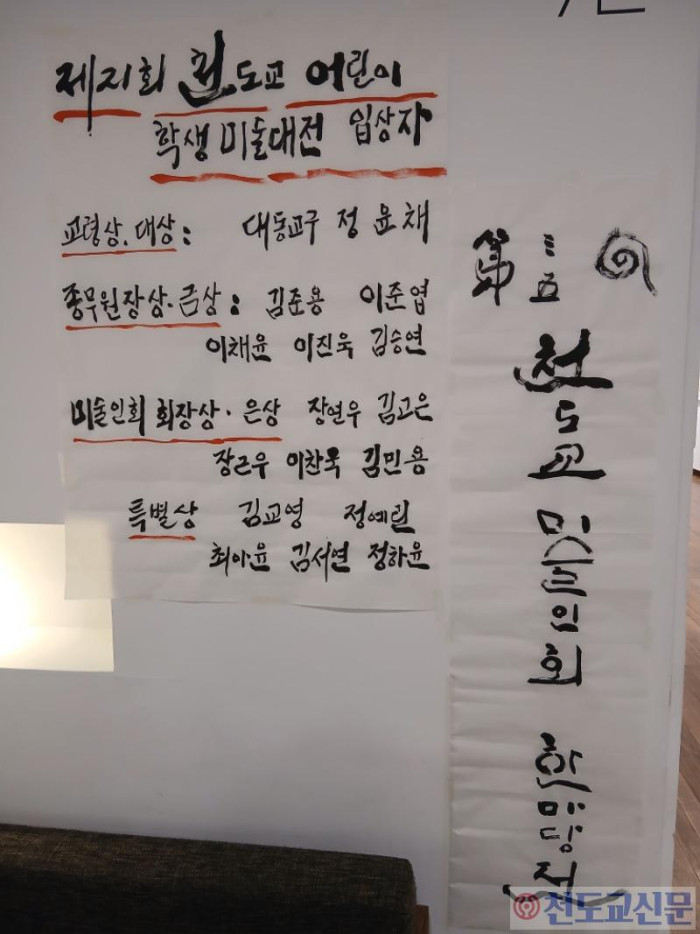 제지회 천도교 어린이
학생 미술대전 입상자
교령상. 대상 : 대동교구 정윤채
종무원장상·금상 : 김준용 이준엽
이채윤 이진욱 김승연
미술인회 회장상·은상 장연우 김고은
장근우 이찬욱 김민용
특별상 김교영 정예린
최아윤 김서연 정하윤
第三五 천도교 미술인회 한마당전
천도교신문